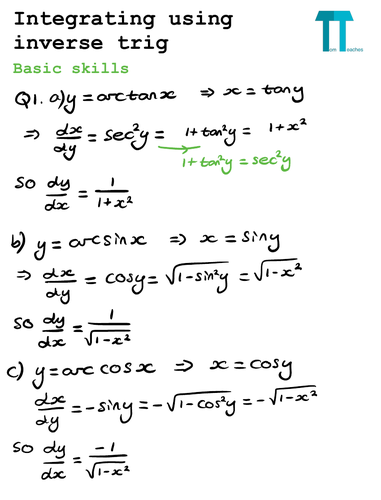 Integrating using
inverse trig
Tom Teaches
Basic skills
Q1. a) y = arctanx ⇒ x = tany
⇒ dx/dy = sec²y = 1+tan²y = 1+x²
1+tan²y = sec²y
So dy/dx = 1/(1+x²)
b) y = arcsinx ⇒ x = siny
⇒ dx/dy = cosy = √(1-sin²y) = √(1-x²)
So dy/dx = 1/√(1-x²)
c) y = arccosx ⇒ x = cosy
dx/dy = -siny = -√(1-cos²y) = -√(1-x²)
So dy/dx = -1/√(1-x²)